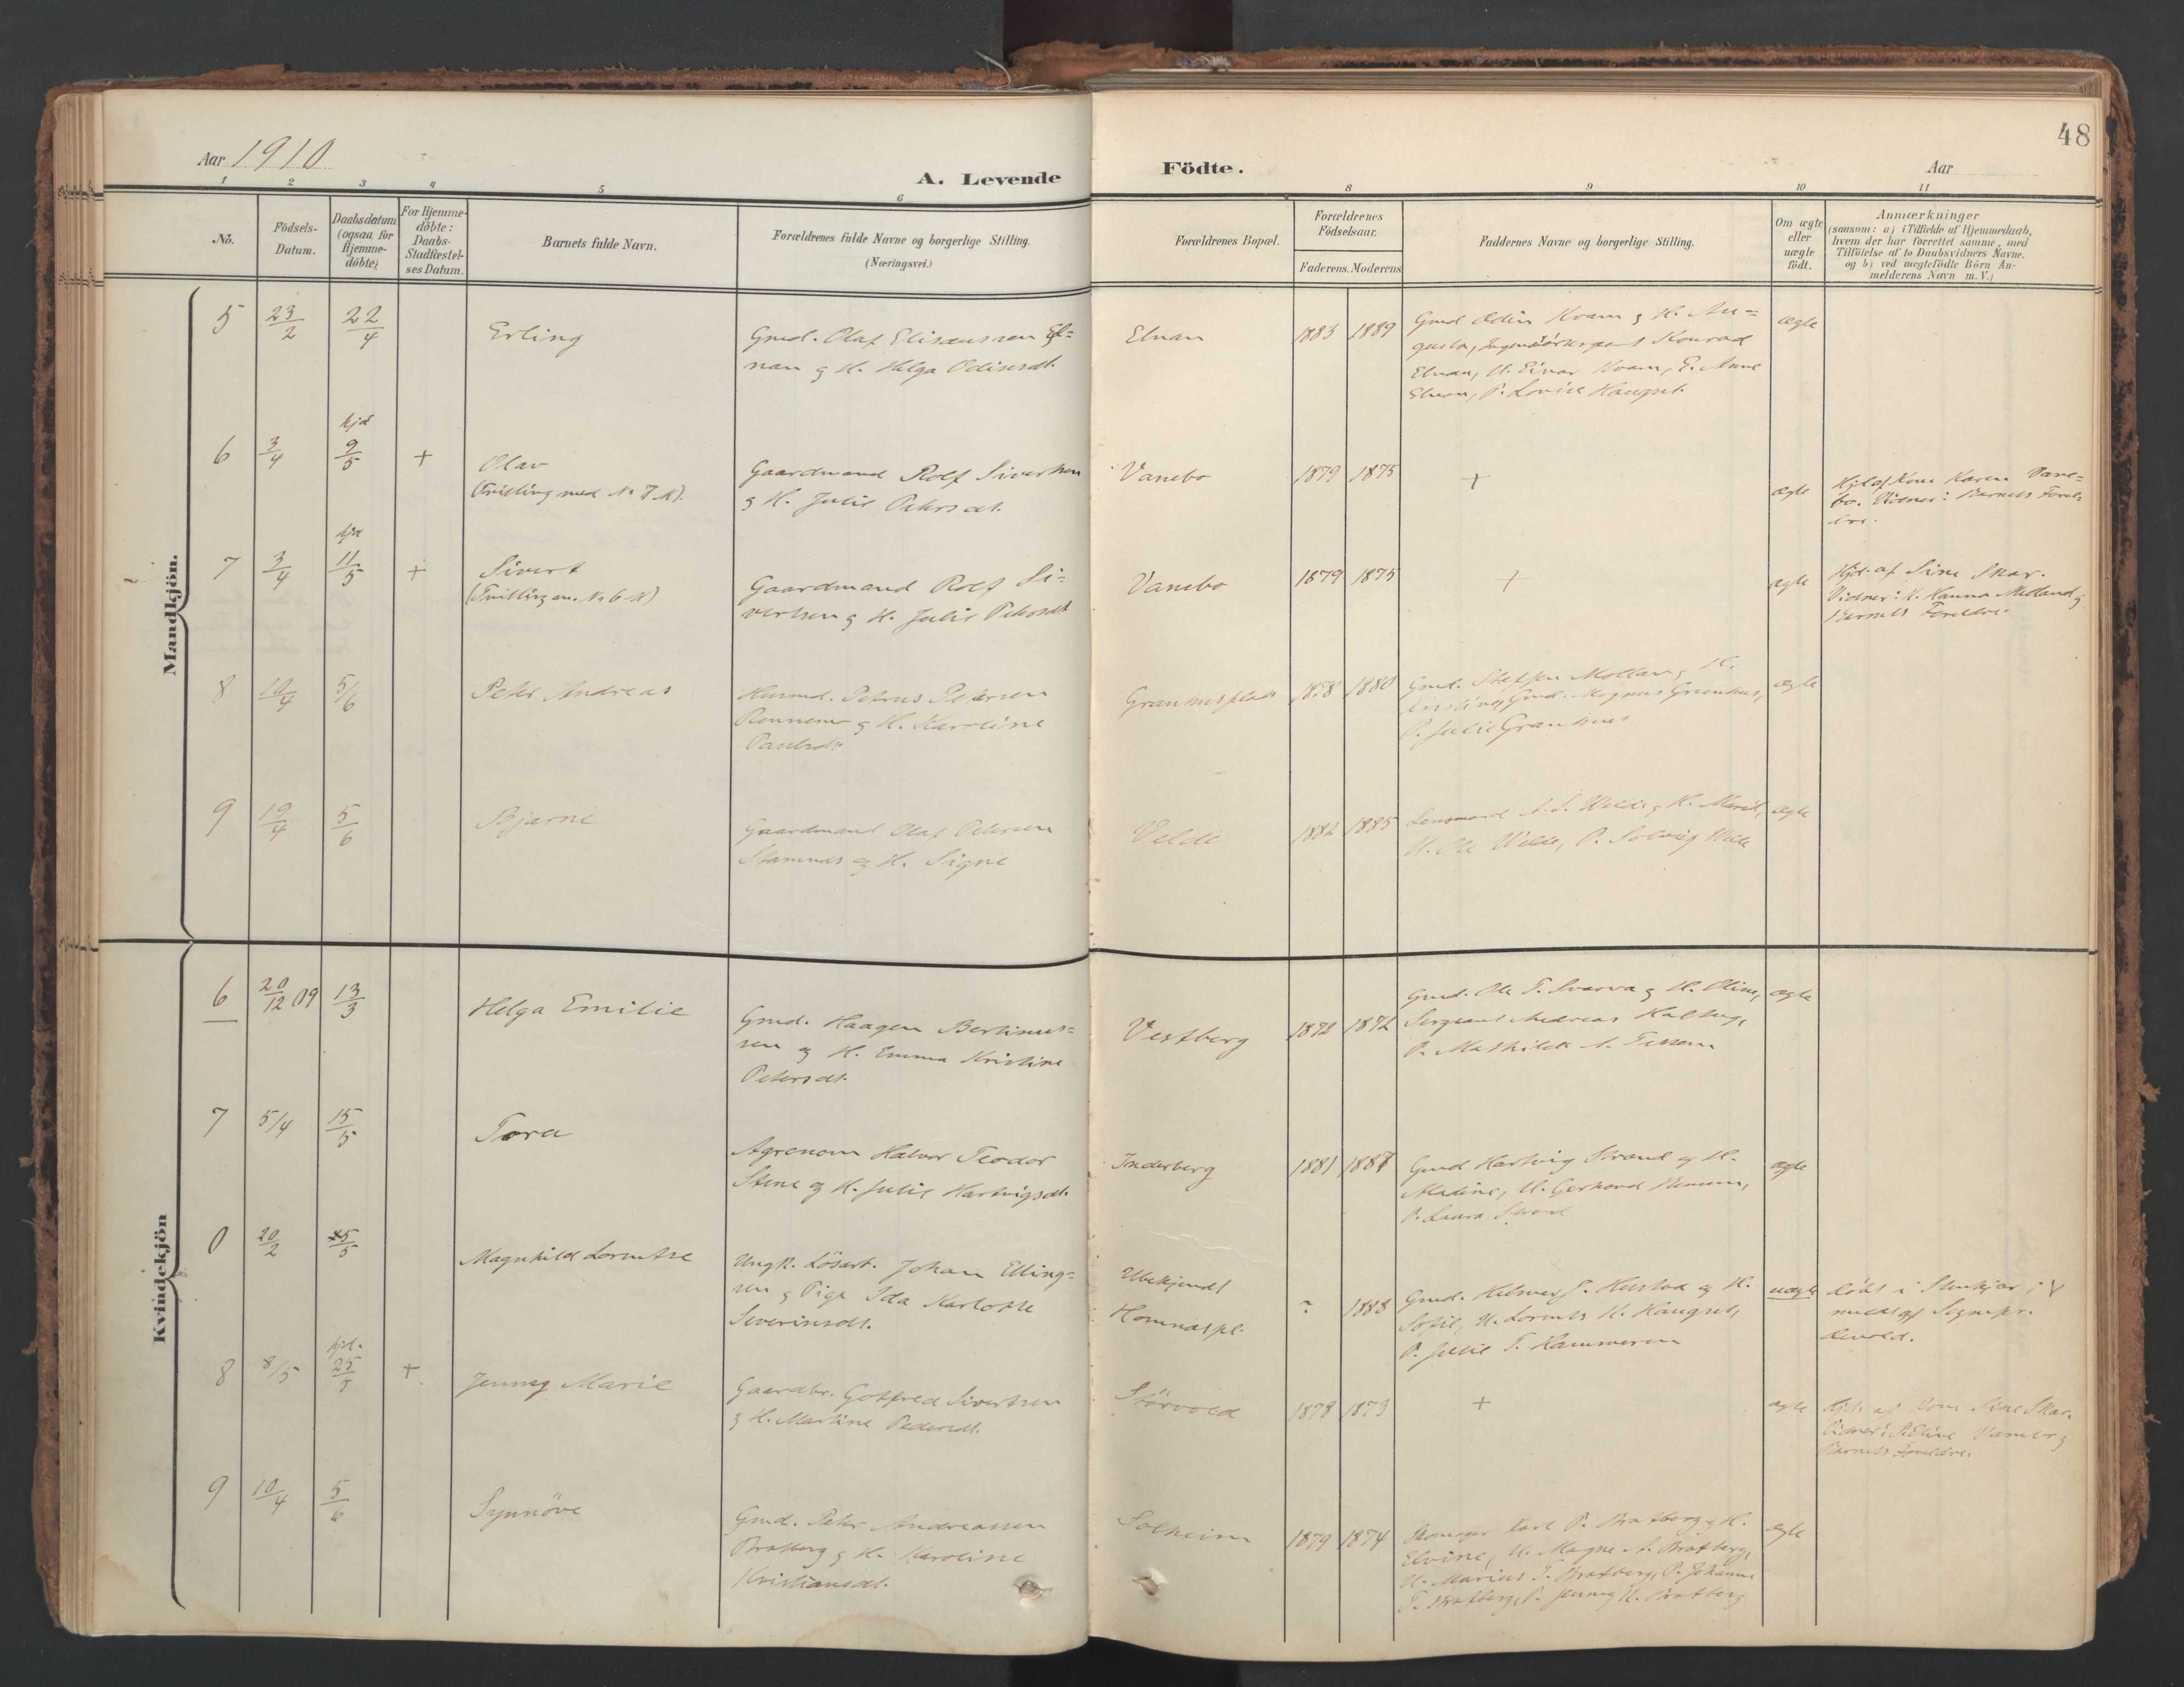 Aar 1910
A. Levende
Födte.
Aar
48
1 2 3 4 5 6 8 9 10 11
No.
Födsels-
Datum.
Daabsdatum
(ogsaa for
Hjemme-
döbte)
For Hjemme-
döbte:
Daabs-
Stadfæstel-
ses Datum.
Barnets fulde Navn.
Forældrenes fulde Navne og borgerlige Stilling.
(Næringsvei.)
Forældrenes Bopæl.
Forældrenes
Födselsaar.
Faderens. Moderens
Faddernes Navne og borgerlige Stilling.
Om ægte
eller
uægte
födt.
Anmærkninger
(saasom: a) i Tilfælde af Hjemmedaab,
hvem der har forrettet samme, med
Tilföielse af to Daabsvidners Navne.
og b) ved uægtefödte Börn An-
melderens Navn m. V.)
Mandkjön.
5
23/2
22/4
Erling
Gmd. Olaf Elisæussen El-
nan & H. Helga Odinsdt.
Elnan
1883 1889
Gmd Odin Kvam & H. Au-
gusta, Konrad
Elnan, U. Einar Kvam, E. Anne
Elnan, P. Lovise Haugset.
ægte
6
3/4
hjd
9/5
+
Olav
(Tvilling med No 7 M).
Gaardmand Rolf Sivertsen
& H. Julie Petersdt.
Vanebo
1879 1875
+
ægte
Hjd. af Kone Karen Vane-
bo. Vidner: Barnets Forel-
dre.
7
3/4
hjd
11/5
+
Sivert
(Tvilling m. No 6 M)
Gaardmand Rolf Si-
vertsen & H. Julie Petersdt
Vanebo
1879 1875
+
ægte
Hjd. af Sine Skar.
Vidner: K. Hanna &
Barnets Foreldre.
8
10/4
5/6
Peter Andreas
Husmd. Petrus Petersen
& H. Karoline
Paulsdt
Granhusplads
1878 1880
Gmd. Steffen Mollan & H.
Kristine, Gmd. Magnus Granhus,
P. Julie Granhus
ægte
9
19/4
5/6
Bjarne
Gaardmand Olaf Petersen
Stamnas og H. Signe
Velde
1882 1885
Lensmand A. S. Welde & H. Marit,
U. Ole Welde, P. Solveig Welde
ægte
Kvindekjön
6
20/12 09
13/3
Helga Emilie
Gmd. Haagen Bertinus-
sen og H. Emma Kristine
Petersdt.
Vestberg
1872 1872
Gmd. Ole T. Svarva & H. Oline,
Sergeant Andreas Kalberg,
P. Mathilde A. Tessem
ægte
7
5/4
15/5
Tora
Agronom Halvor Teodor
Stene og H. Julie Hartvigsdt.
Inderberg
1881 1887
Gmd Hartvig Strand og H.
Madine, U. Gerhard
P. Laura Strand
ægte
0
20/2
5/5
Magnhild Lorentse
Ungk. Lösarb. Johan Elling-
sen & Pige Ida Karlotte
Severinsdt.
Ubekjendt
Homnaspl.
? 1888
Gmd. Hilmer J. Hustad og H.
Sofie, U. Lorents K. Haugset,
P. Julie T. Hammeren
uægte
döbt i Stenkjær, an-
meldt af Sognepr.
8
8/5
hjd.
25/5
+
Jenney Marie
Gaardbr. Gotfred Sivertsen
& H. Martine Pedersdt.
Störvold
1878 1873
+
ægte
Hjd. af Kone Sine Skar.
Vidner: P. Eline Vanebo &
Barnets Foreldre.
9
10/4
5/6
Synnöve
Gmd. Peter Andreassen
Bratberg & H. Karoline
Kristiansdt.
Solheim
1879 1874
Skomager Karl P. Bratberg & H.
Elvine, U. Magne A. Bratberg,
U. Marius T. Bratberg, P. Johanna
T. Bratberg, P. Jenny H. Bratberg
ægte